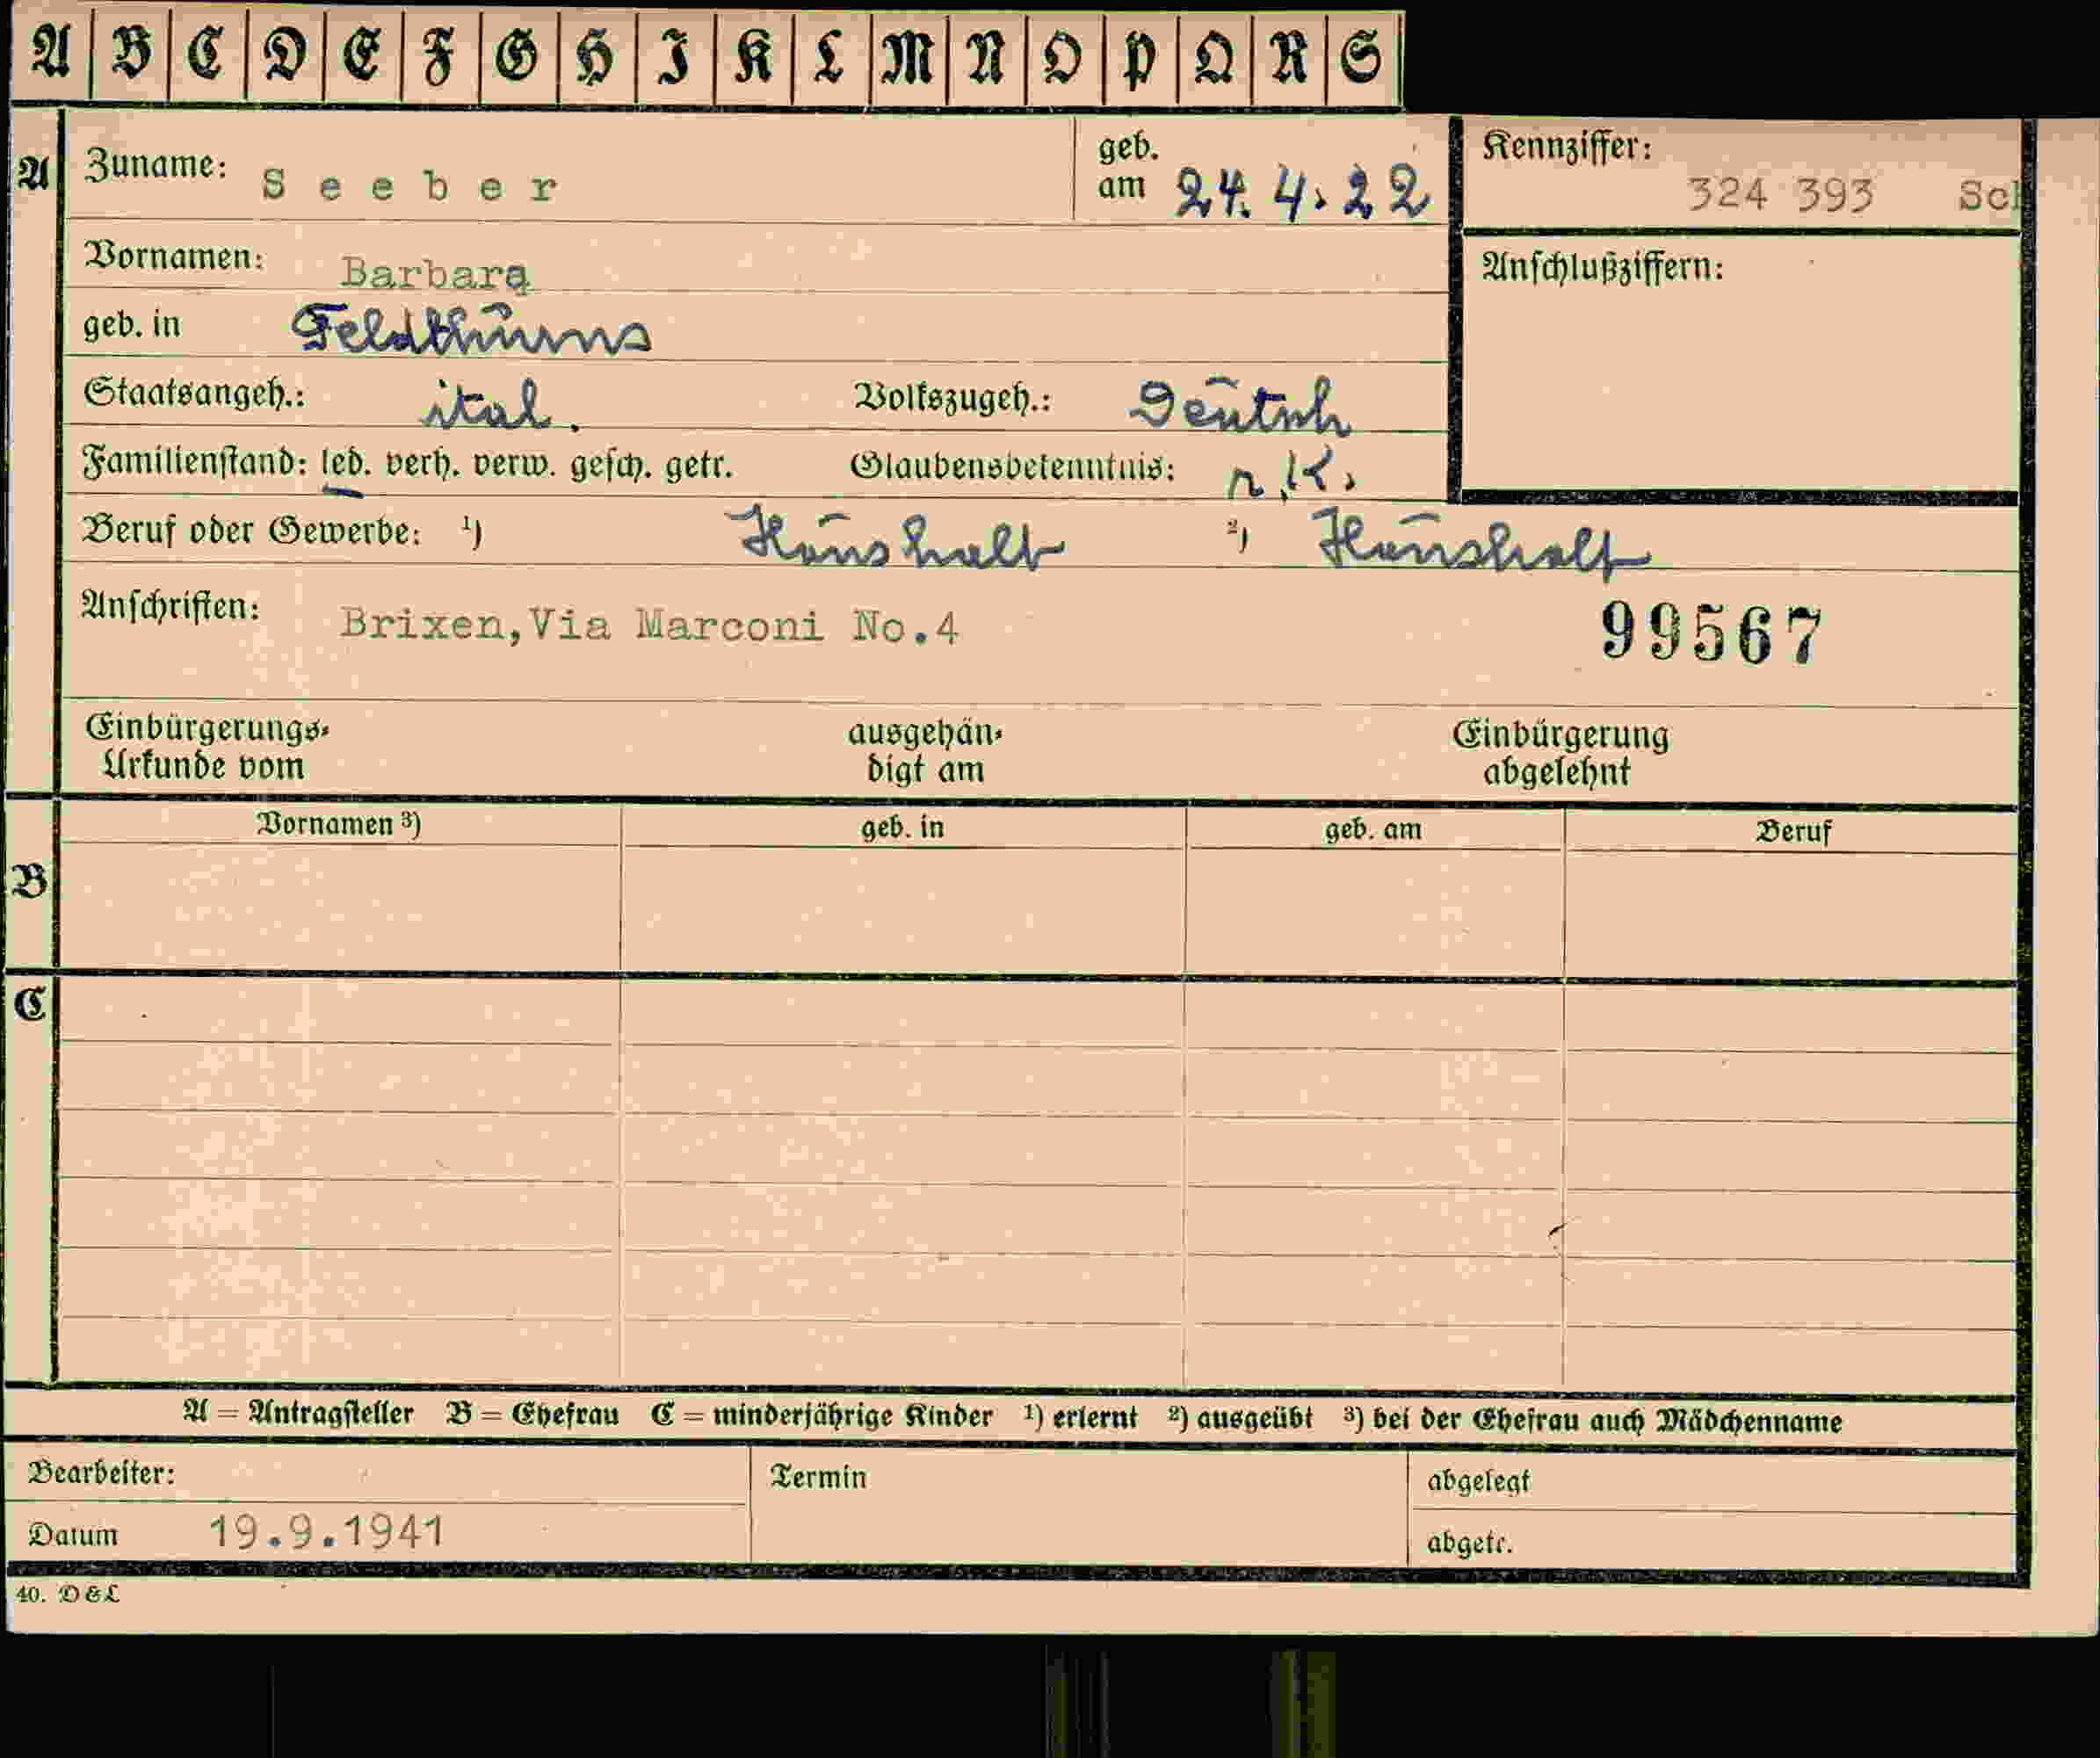 A B C D E F G H I K L M N O P Q R S
A
Zuname: Seeber
geb. am 24.4.22
Kennziffer:
324 393 Sch
Vornamen: Barbara
Anschlußziffern:
geb. in Feldthurns
Staatsangeh.: ital. Volkszugeh.: Deutsch
Familienstand: led. verh. verw. gesch. getr. Glaubensbekenntnis: r.K.
Beruf oder Gewerbe: ¹) Haushalt ²) Haushalt
Anschriften: Brixen,Via Marconi No.4
99567
Einbürgerungs- ausgehän- Einbürgerung
Urkunde vom digt am abgelehnt
Vornamen ³) geb. in geb. am Beruf
B
C
A = Antragsteller B = Ehefrau C = minderjährige Kinder ¹) erlernt ²) ausgeübt ³) bei der Ehefrau auch Mädchenname
Bearbeiter: Termin abgelegt
Datum 19.9.1941 abgetr.
40. D&L